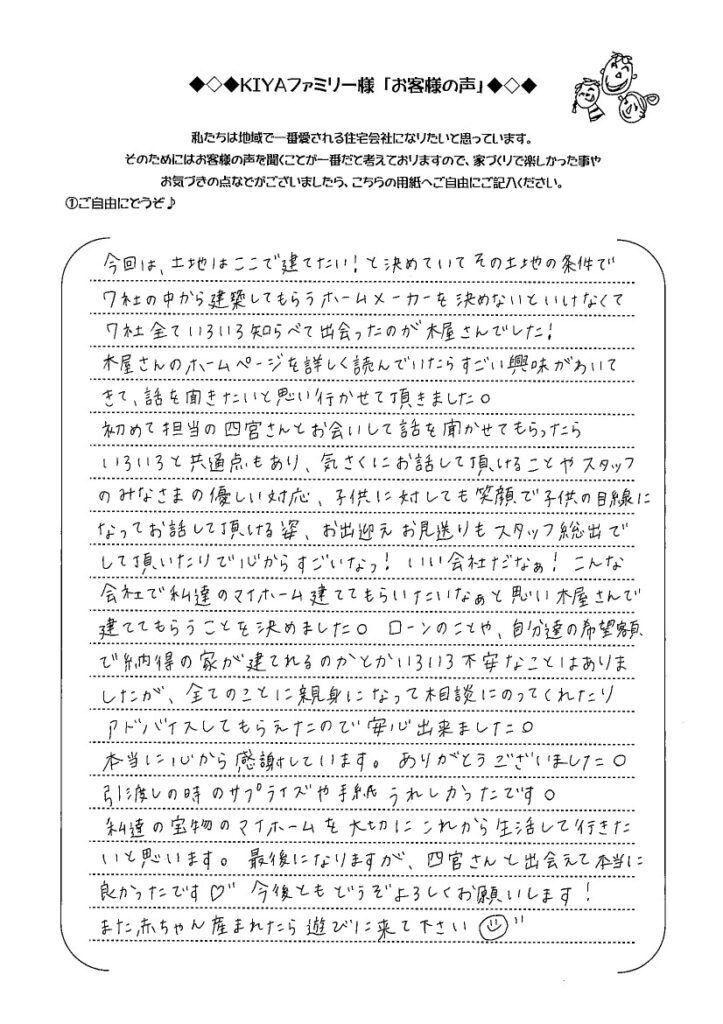 ◆◇◆KIYAファミリー様「お客様の声」◆◇◆
私たちは地域で一番愛される住宅会社になりたいと思っています。
そのためにはお客様の声を聞くことが一番だと考えておりますので、家づくりで楽しかった事や
お気づきの点などがございましたら、こちらの用紙へご自由にご記入ください。
①ご自由にどうぞ♪
今回は、土地はここで建てたい!と決めていてその土地の条件で
7社の中から建築してもらうホームメーカーを決めないといけなくて
7社全ていろいろ知らべて出会ったのが木屋さんでした!
木屋さんのホームページを詳しく読んでいたらすごい興味がわいて
きて、話を聞きたいと思い行かせて頂きました。
初めて担当の四宮さんとお会いして話を聞かせてもらったら
いろいろと共通点もあり、気さくにお話して頂けることやスタッフ
のみなさまの優しい対応、子供に対しても笑顔で子供の目線に
なってお話して頂ける姿、お出迎えお見送りもスタッフ総出で
して頂いたりで心からすごいなっ!いい会社だなぁ!こんな
会社で私達のマイホーム建ててもらいたいなぁと思い木屋さんで
建ててもらうことを決めました。ローンのことや、自分達の希望額
で納得の家が建てれるのかとかいろいろ不安なことはありま
したが、全てのことに親身になって相談にのってくれたり
アドバイスしてもらえたので安心出来ました。
本当に心から感謝しています。ありがとうございました。
引渡しの時のサプライズや手紙うれしかったです。
私達の宝物のマイホームを大切にこれから生活して行きた
いと思います。最後になりますが、四宮さんと出会えて本当に
良かったです♡今後ともどうぞよろしくお願いします!
また赤ちゃん産まれたら遊びに来て下さい